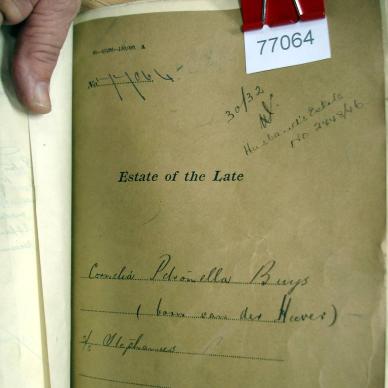 77064
No. 77064
30/32
Husband's Estate
No 2448/46
Estate of the Late
Cornelia Petronella Buys
(born van der Hever)
Stephanus